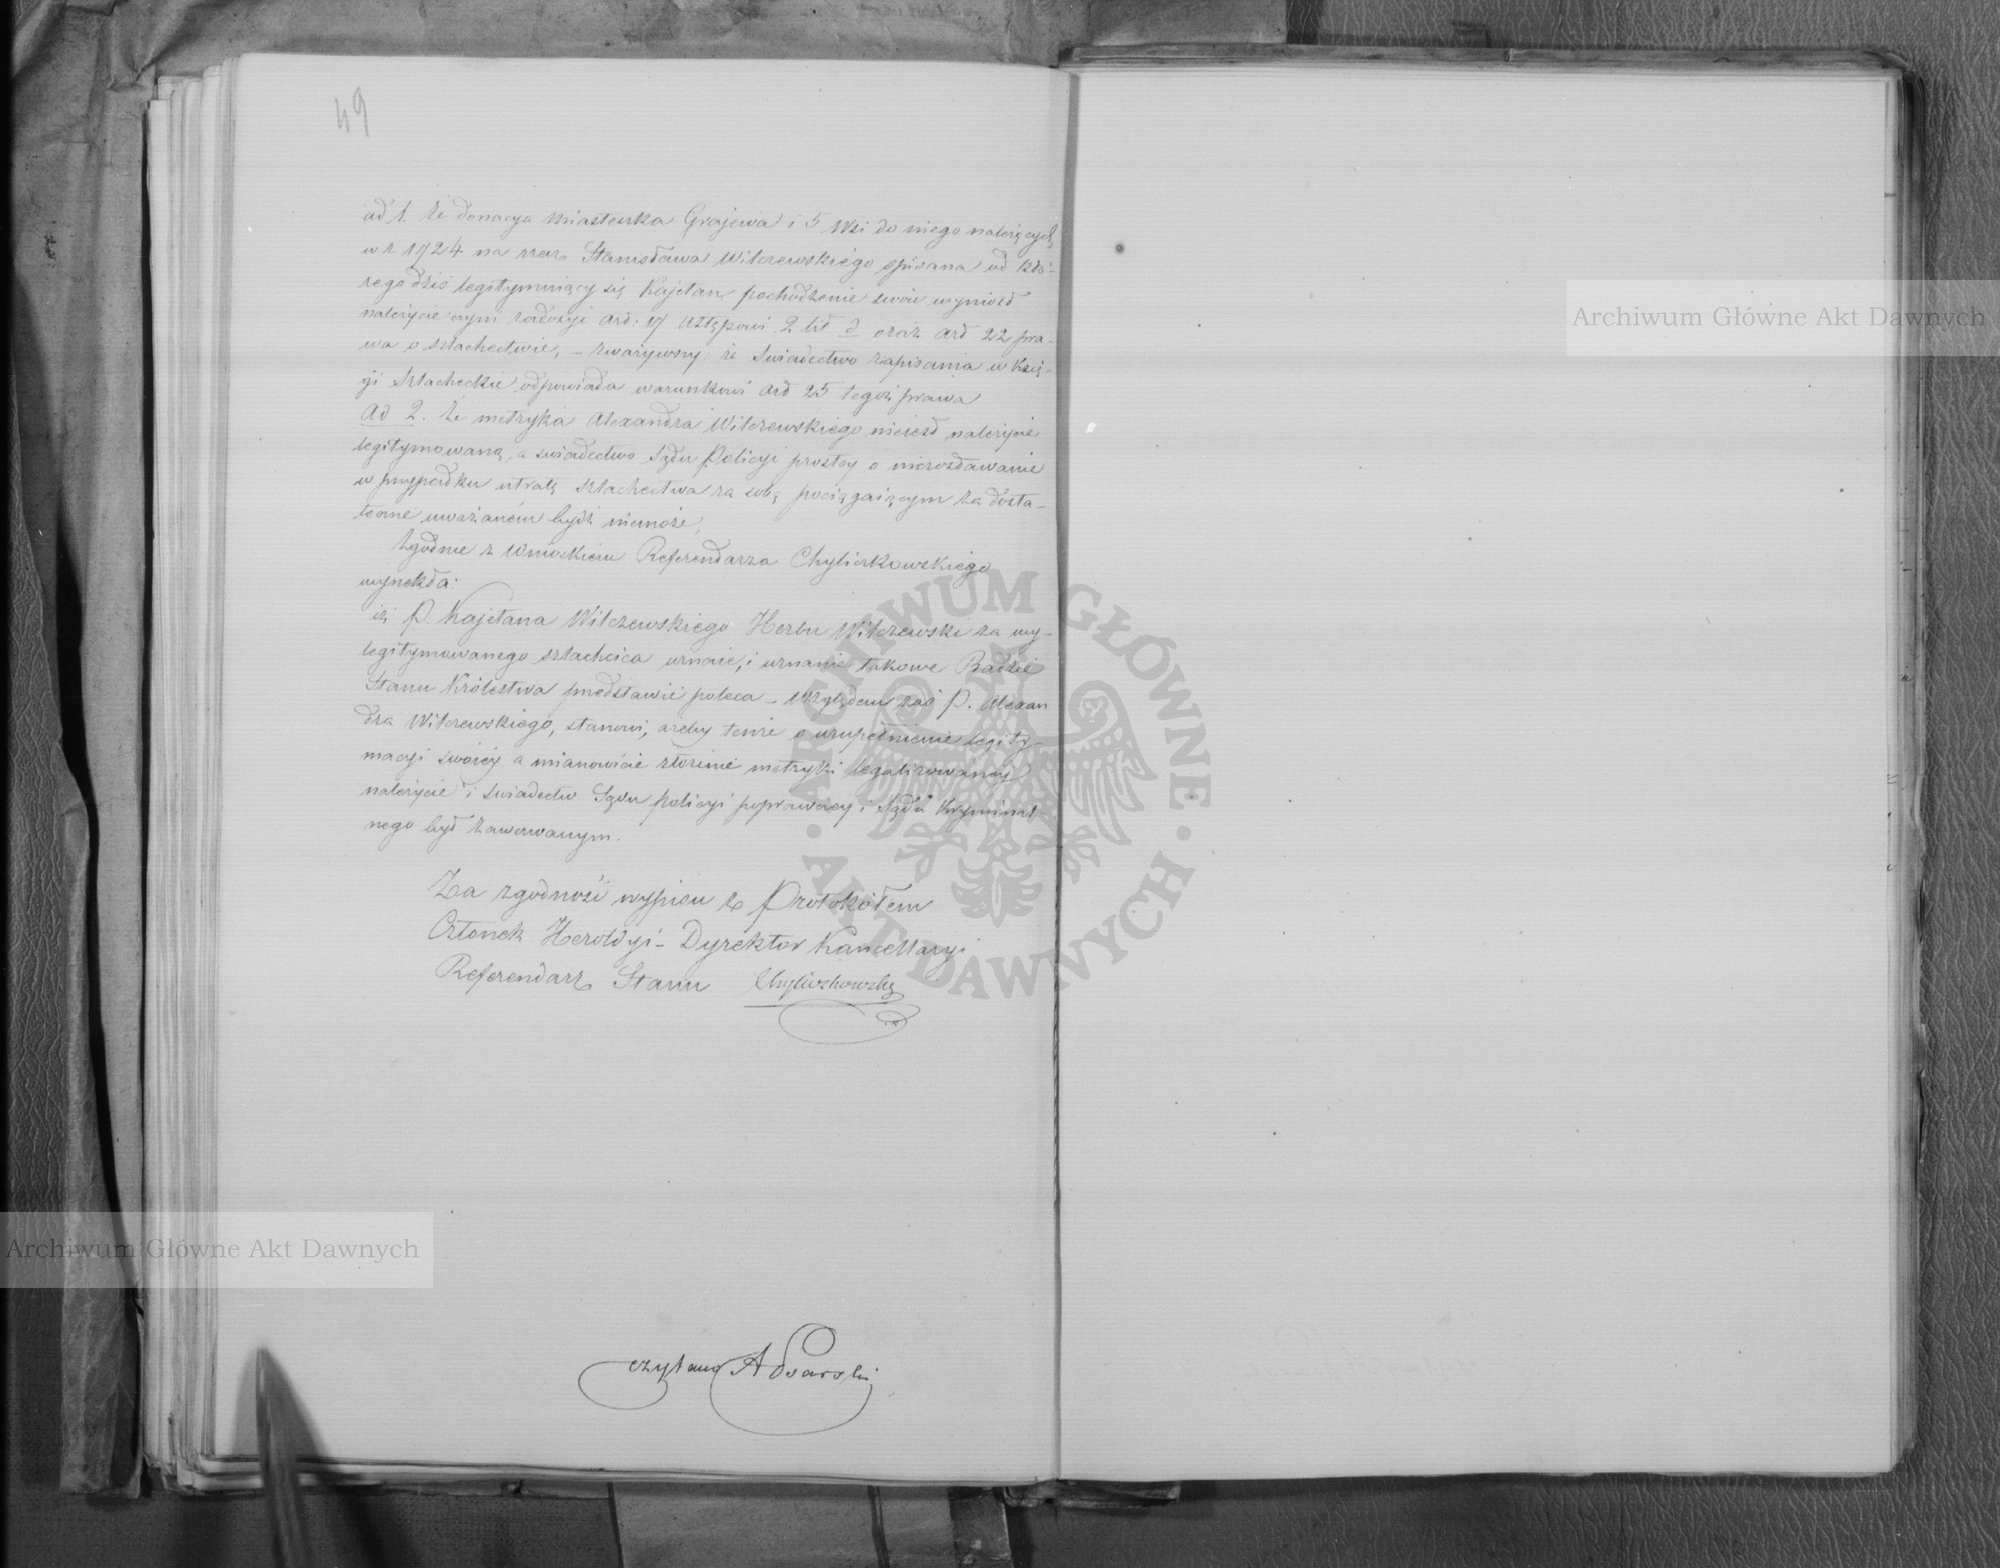 49
ad 1. że donacya Miasteczka Grajewa i 5 Wsi do niego należących
w r 1724 na rzecz Stanisława Wilczewskiego spisana od któ-
rego dziś legitymuiący się Kajetan pochodzenie swoie wyniosł
należycie czyni zadosyć Art: 17 Ustępowi 2 lit d oraz Art 22 pra-
wa o szlachectwie, – zważywszy że Swiadectwo zapisania w Księ-
gi Szlacheckie odpowiada warunkowi Art 25 tegoż prawa
Ad 2. że metryka Alexandra Wilczewskiego nieiest należycie
legitymowaną, a swiadectwo Sądu Policyi prostey o
w przypadku utratę szlachectwa za sobą pociągaiącym za dosta-
teczne uważaném bydź niemoże,
Zgodnie z Wnioskiem Referendarza Chyliczkowskiego
wyrzekła:
iż P. Kajetana Wilczewskiego Herbu Wilczewski za wy-
legitymowanego szlachcica uznaie, i uznanie takowe Radzie
Stanu Królestwa przedstawić poleca – Względem zaś P. Alexan
dra Wilczewskiego, stanowi, ażeby tenże o uzupełnienie legity-
macyi swoiéy a mianowicie złożenie metryki legalizowanéy
należycie i swiadectw Sądu policyi poprawczey i Sądu Kryminal-
nego był zawezwanym.
Za zgodność wypisu z Protokółem
Członek Heroldyi – Dyrektor Kancellaryi
Referendarz Stanu Chyliczkowski
czytano A Psarski
Archiwum Główne Akt Dawnych
Archiwum Główne Akt Dawnych
· ARCHIWUM GŁÓWNE ·
AKT DAWNYCH